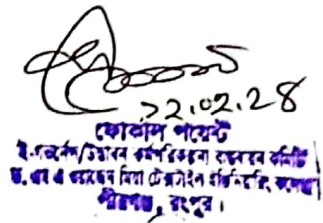 ১২.০২.২৪
ফোকাল পয়েন্ট
ই-গভর্নেন্স/উদ্ভাবন কর্মপরিকল্পনা বাস্তবায়ন কমিটি
ড. এম এ ওয়াজেদ মিয়া টেক্সটাইল ইঞ্জিনিয়ারিং কলেজ
পীরগঞ্জ, রংপুর।